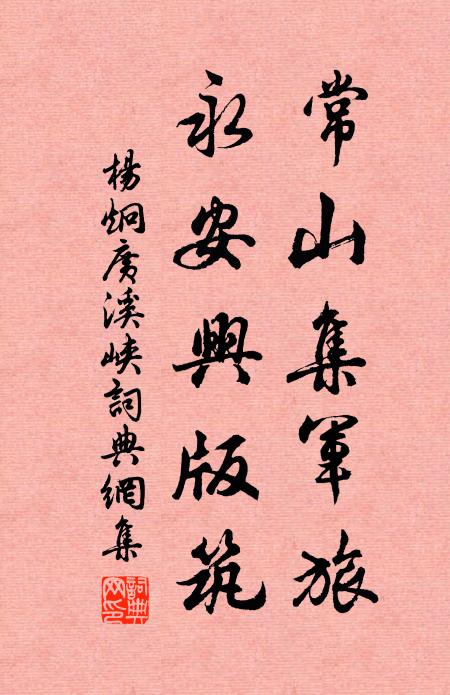 常山集軍旅
永安興版筑
楊炯廣溪峽詞典網集
詞典网印